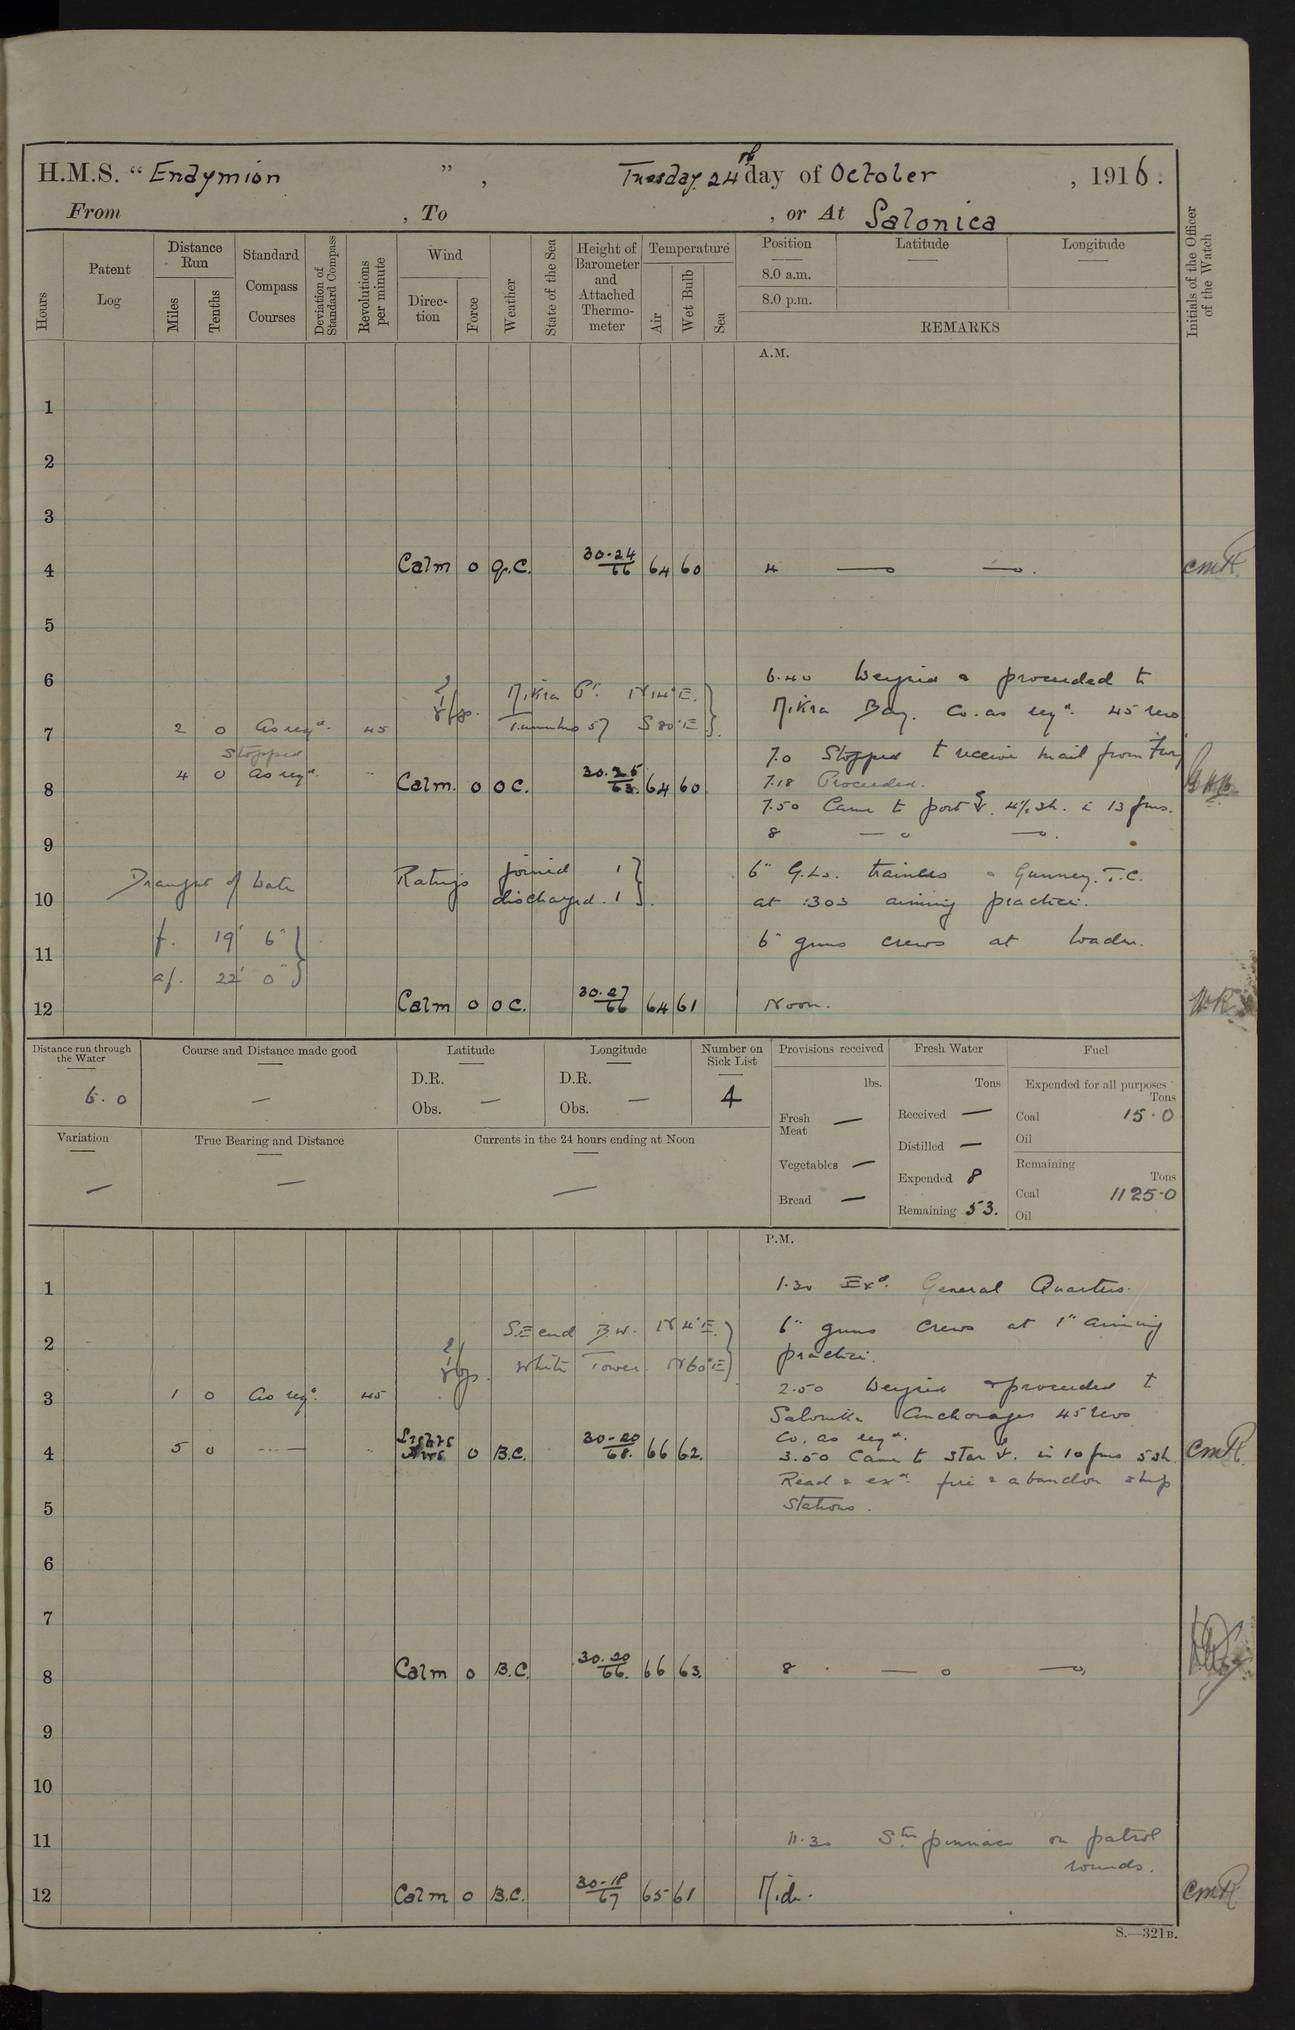 H.M.S. "Endymion", Tuesday 24th day of October, 1916.
From , To , or At Salonica
Hours
Patent Log
Distance Run
Miles
Tenths
Standard Compass Courses
Deviation of Standard Compass
Revolutions per minute
Wind
Direction
Force
Weather
State of the Sea
Height of Barometer and Attached Thermometer
Temperature
Air
Wet Bulb
Sea
Position Latitude Longitude
8.0 a.m.
8.0 p.m.
REMARKS
Initials of the Officer of the Watch
A.M.
1
2
3
4 Calm 0 30.24/66 64 60 4 CMR
5
6 6.40 Weighed & proceeded to
Mikra Pt. N14°E. Mikra Bay. Co. as reqd. 45 revs
7 2 0 As reqd. 45 S80°E
Stopped 7.0 Stopped to receive mail from
4 0 as reqd. 7.18 Proceeded.
8 Calm. 0 O C. 30.25/63. 64 60
7.50 Came to port 4½ sh. in 13 fms.
8
9
Draught of Water Ratings joined 1 6" G.Ls. trainers & Gunnery. T.C.
10 discharged. 1 at .303 aiming practice.
f. 19' 6" 6" guns crews at loader.
11
af. 22' 0"
12 Calm 0 O C. 30.27/66 64 61 Noon.
Distance run through the Water
6.0
Course and Distance made good
—
Latitude
D.R.
Obs. —
Longitude
D.R.
Obs. —
Number on Sick List
4
Provisions received
lbs.
Fresh Meat —
Vegetables —
Bread —
Fresh Water
Tons
Received —
Distilled —
Expended 8
Remaining 53.
Fuel
Expended for all purposes
Tons
Coal 15.0
Oil
Remaining
Tons
Coal 1125.0
Oil
Variation
—
True Bearing and Distance
—
Currents in the 24 hours ending at Noon
—
P.M.
1 1.30 Exd. General Quarters.
S.E end B.W. N4°E. 6" guns crews at 1" aiming
2 practice.
White Tower N60°E
3 1 0 As reqd. 45 2.50 Weighed & proceeded to
Salonika Anchorage 45 revs
Co. as reqd.
4 5 0 Lights Airs 0 B.C. 30.20/68. 66 62. 3.50 Came to star in 10 fms 5 sh. CMR.
Read & exd. fire & abandon ship
5 Stations.
6
7
8 Calm 0 B.C. 30.20/66. 66 63. 8
9
10
11 11.30 Stm pinnace on patrol
rounds.
12 Calm 0 B.C. 30.18/67 65 61 Midn. CMR
S.—321B.